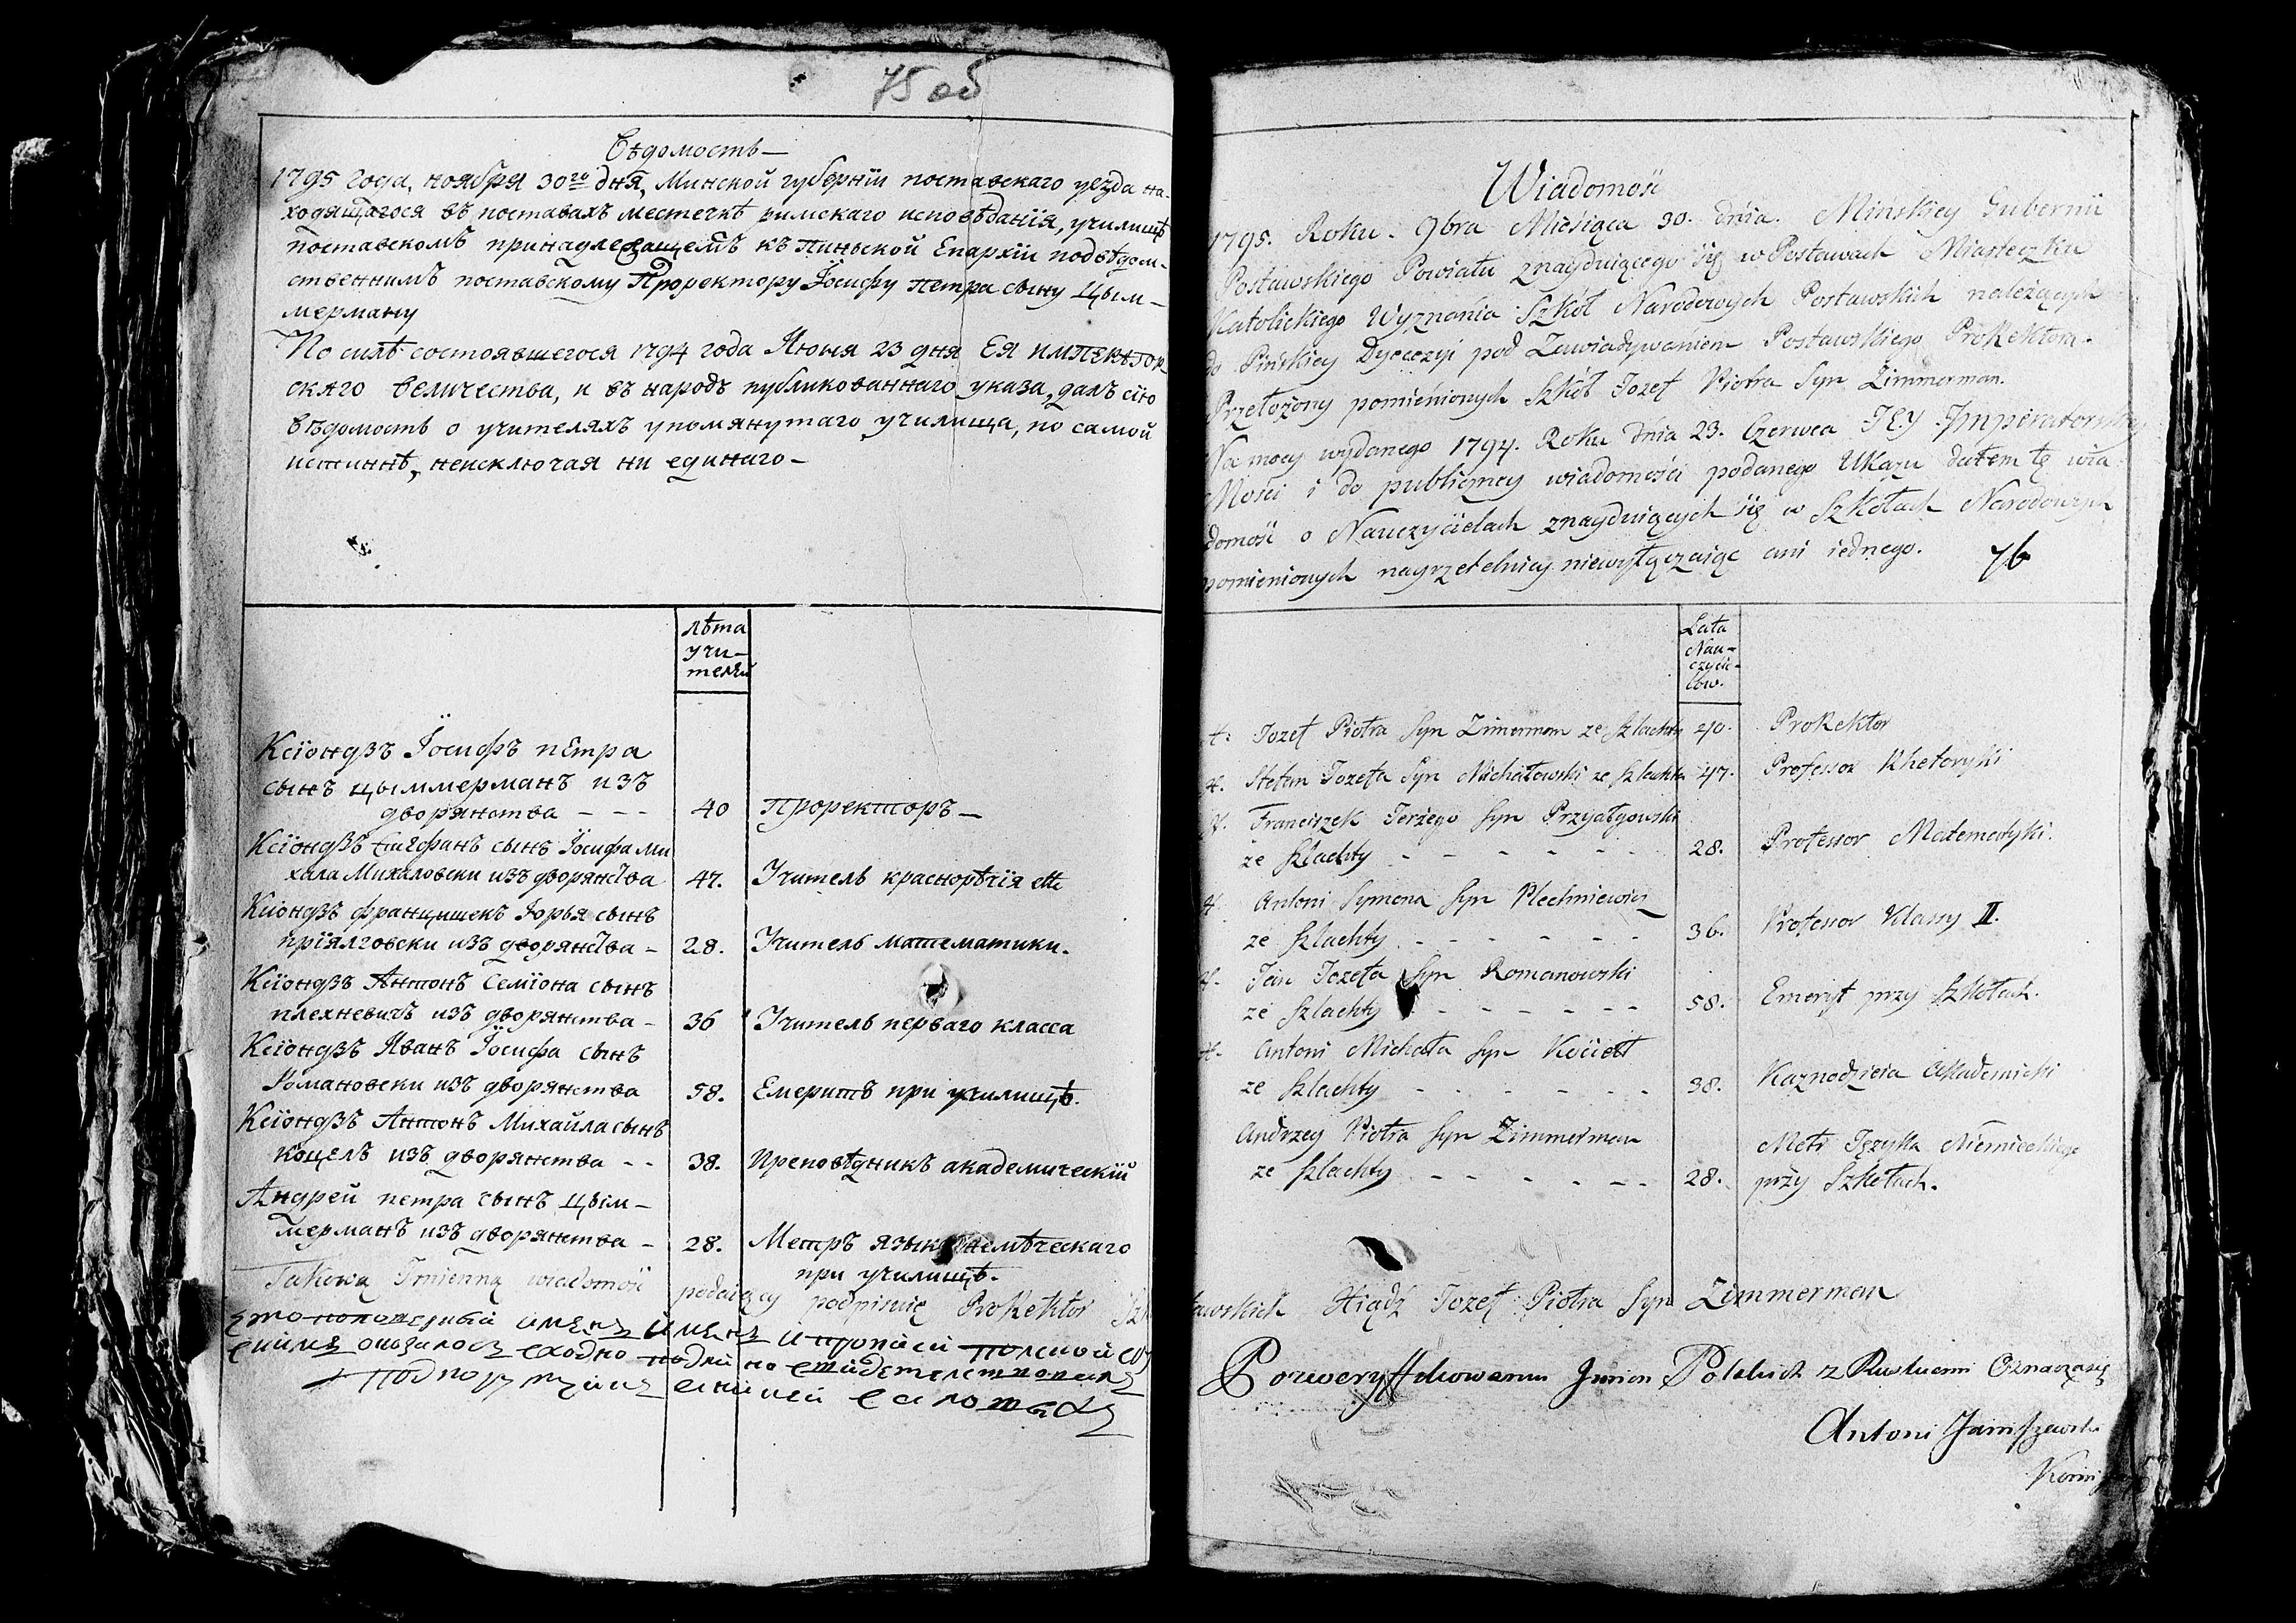 75 об
Вѣдомость
1795 года, ноября 30го дня, Минской губерніи поставскаго уезда на-
ходящагося въ поставахъ местечкѣ римскаго исповѣданія, училищѣ
поставскомъ принадлежащемъ къ Пиньской Епархіи подвѣдом-
ственнимъ поставскому Проректору Іосифу петра сыну Цым-
мерману
По силѣ состоявшегося 1794 года Июня 23 дня ЕЯ ИМПЕРАТОР-
СКАГО величества, и въ народъ публикованнаго указа, далъ сію
вѣдомость о учителяхъ упомянутаго училища, по самой
истиннѣ, неисключая ни единаго
лѣта
учи-
телей
Ксіондзъ Іосифъ петра
сынъ цыммерманъ изъ
дворянства - - - 40 Проректоръ
Ксіондзъ Стефанъ сынъ Іосифа Ми
хала Михаловски изъ дворянства 47. Учитель краснорѣчія
Ксіондзъ францишекъ Юрья сынъ
пріялговски изъ дворянства - 28. Учитель математики.
Ксіондзъ Антонъ Семіона сынъ
плехневичъ изъ дворянства - 36 Учитель перваго класса
Ксіондзъ Иванъ Іосифа сынъ
Романовски изъ дворянства 58. Емеритъ при училищѣ.
Ксіондзъ Антонъ Михайла сынъ
коцелъ изъ дворянства - - 38. Преповѣдникъ академическій
Андрей петра сынъ Цым-
мерманъ изъ дворянства - 28. Метръ языка немѣческаго
при училищѣ.
Takową Imienną wiadomość podaiący podpisuię ProRektor
Wiadomość
1795. Roku. 9bra Miesiąca 30. dnia. Mińskiey Gubernii
Postawskiego Powiatu znayduiącego się w Postawach Miasteczku
Katolickiego Wyznania Szkół Narodowych Postawskich należących
do Pińskiey Dyecezyi pod Zawiadywaniem Postawskiego ProRektora.
Przełożony pomienionych Szkół Jozef Piotra Syn Zimmerman.
Na mocy wydanego 1794. Roku dnia 23. Czerwca JEy Imperatorskiey
Mości i do publiczney wiadomości podanego Ukazu dałem tę wia-
domość o Nauczycielach znayduiących się w Szkołach Narodowych
pomienionych nayrzetelniey niewyłączaiąc ani iednego. 76
Lata
Nau-
czycie-
lów.
X. Jozef Piotra Syn Zimerman ze Szlachty 40. ProRektor
X. Stefan Jozefa Syn Michałowski ze Szlachty 47. Professor Rhetoryki
X. Franciszek Jerzego Syn Przyałgowski
ze Szlachty - - - - - - 28. Professor Matematyki.
X. Antoni Symona Syn Plechniewicz
ze Szlachty - - - - - - 36. Professor Klassy II.
X. Jan Jozefa Syn Romanowski
ze Szlachty - - - - - - 58. Emeryt przy Szkołach.
X. Antoni Michała Syn Kocieł
ze Szlachty - - - - - - 38. Kaznodzieia Akademicki
Andrzey Piotra Syn Zimmerman
ze Szlachty - - - - - - 28. Metr Języka Niemieckiego
przy Szkołach.
Xiądz Jozef Piotra Syn Zimmerman
Antoni